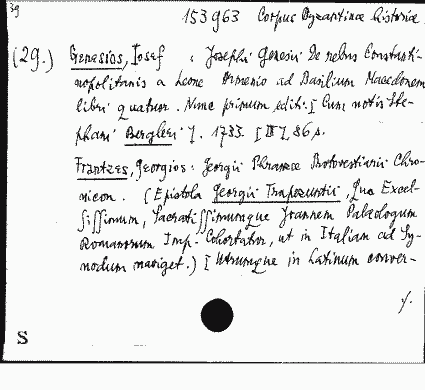 39
153963 Corpus Byzantinae historiae.
(29.) Genesios, Iosef : Josephi Genesii De rebus Constanti-
nopolitanis a Leone Armenio ad Basilium Macedonem
libri quatuor. Nunc primum editi. [Cum notis Ste-
phani Bergleri]. 1733. [IV], 86 p.
Frantzes, Georgios : Georgii Phranzae Protovestiarii Chro-
nicon. (Epistola Georgii Trapezuntii, Qua Excel-
sissimum, Sacratissimumque Joannem Palaeologum
Romanorum Imp. Cohortatur, ut in Italiam ad Sy-
nodum naviget.) [Utrumque in Latinum conver-
./.
S